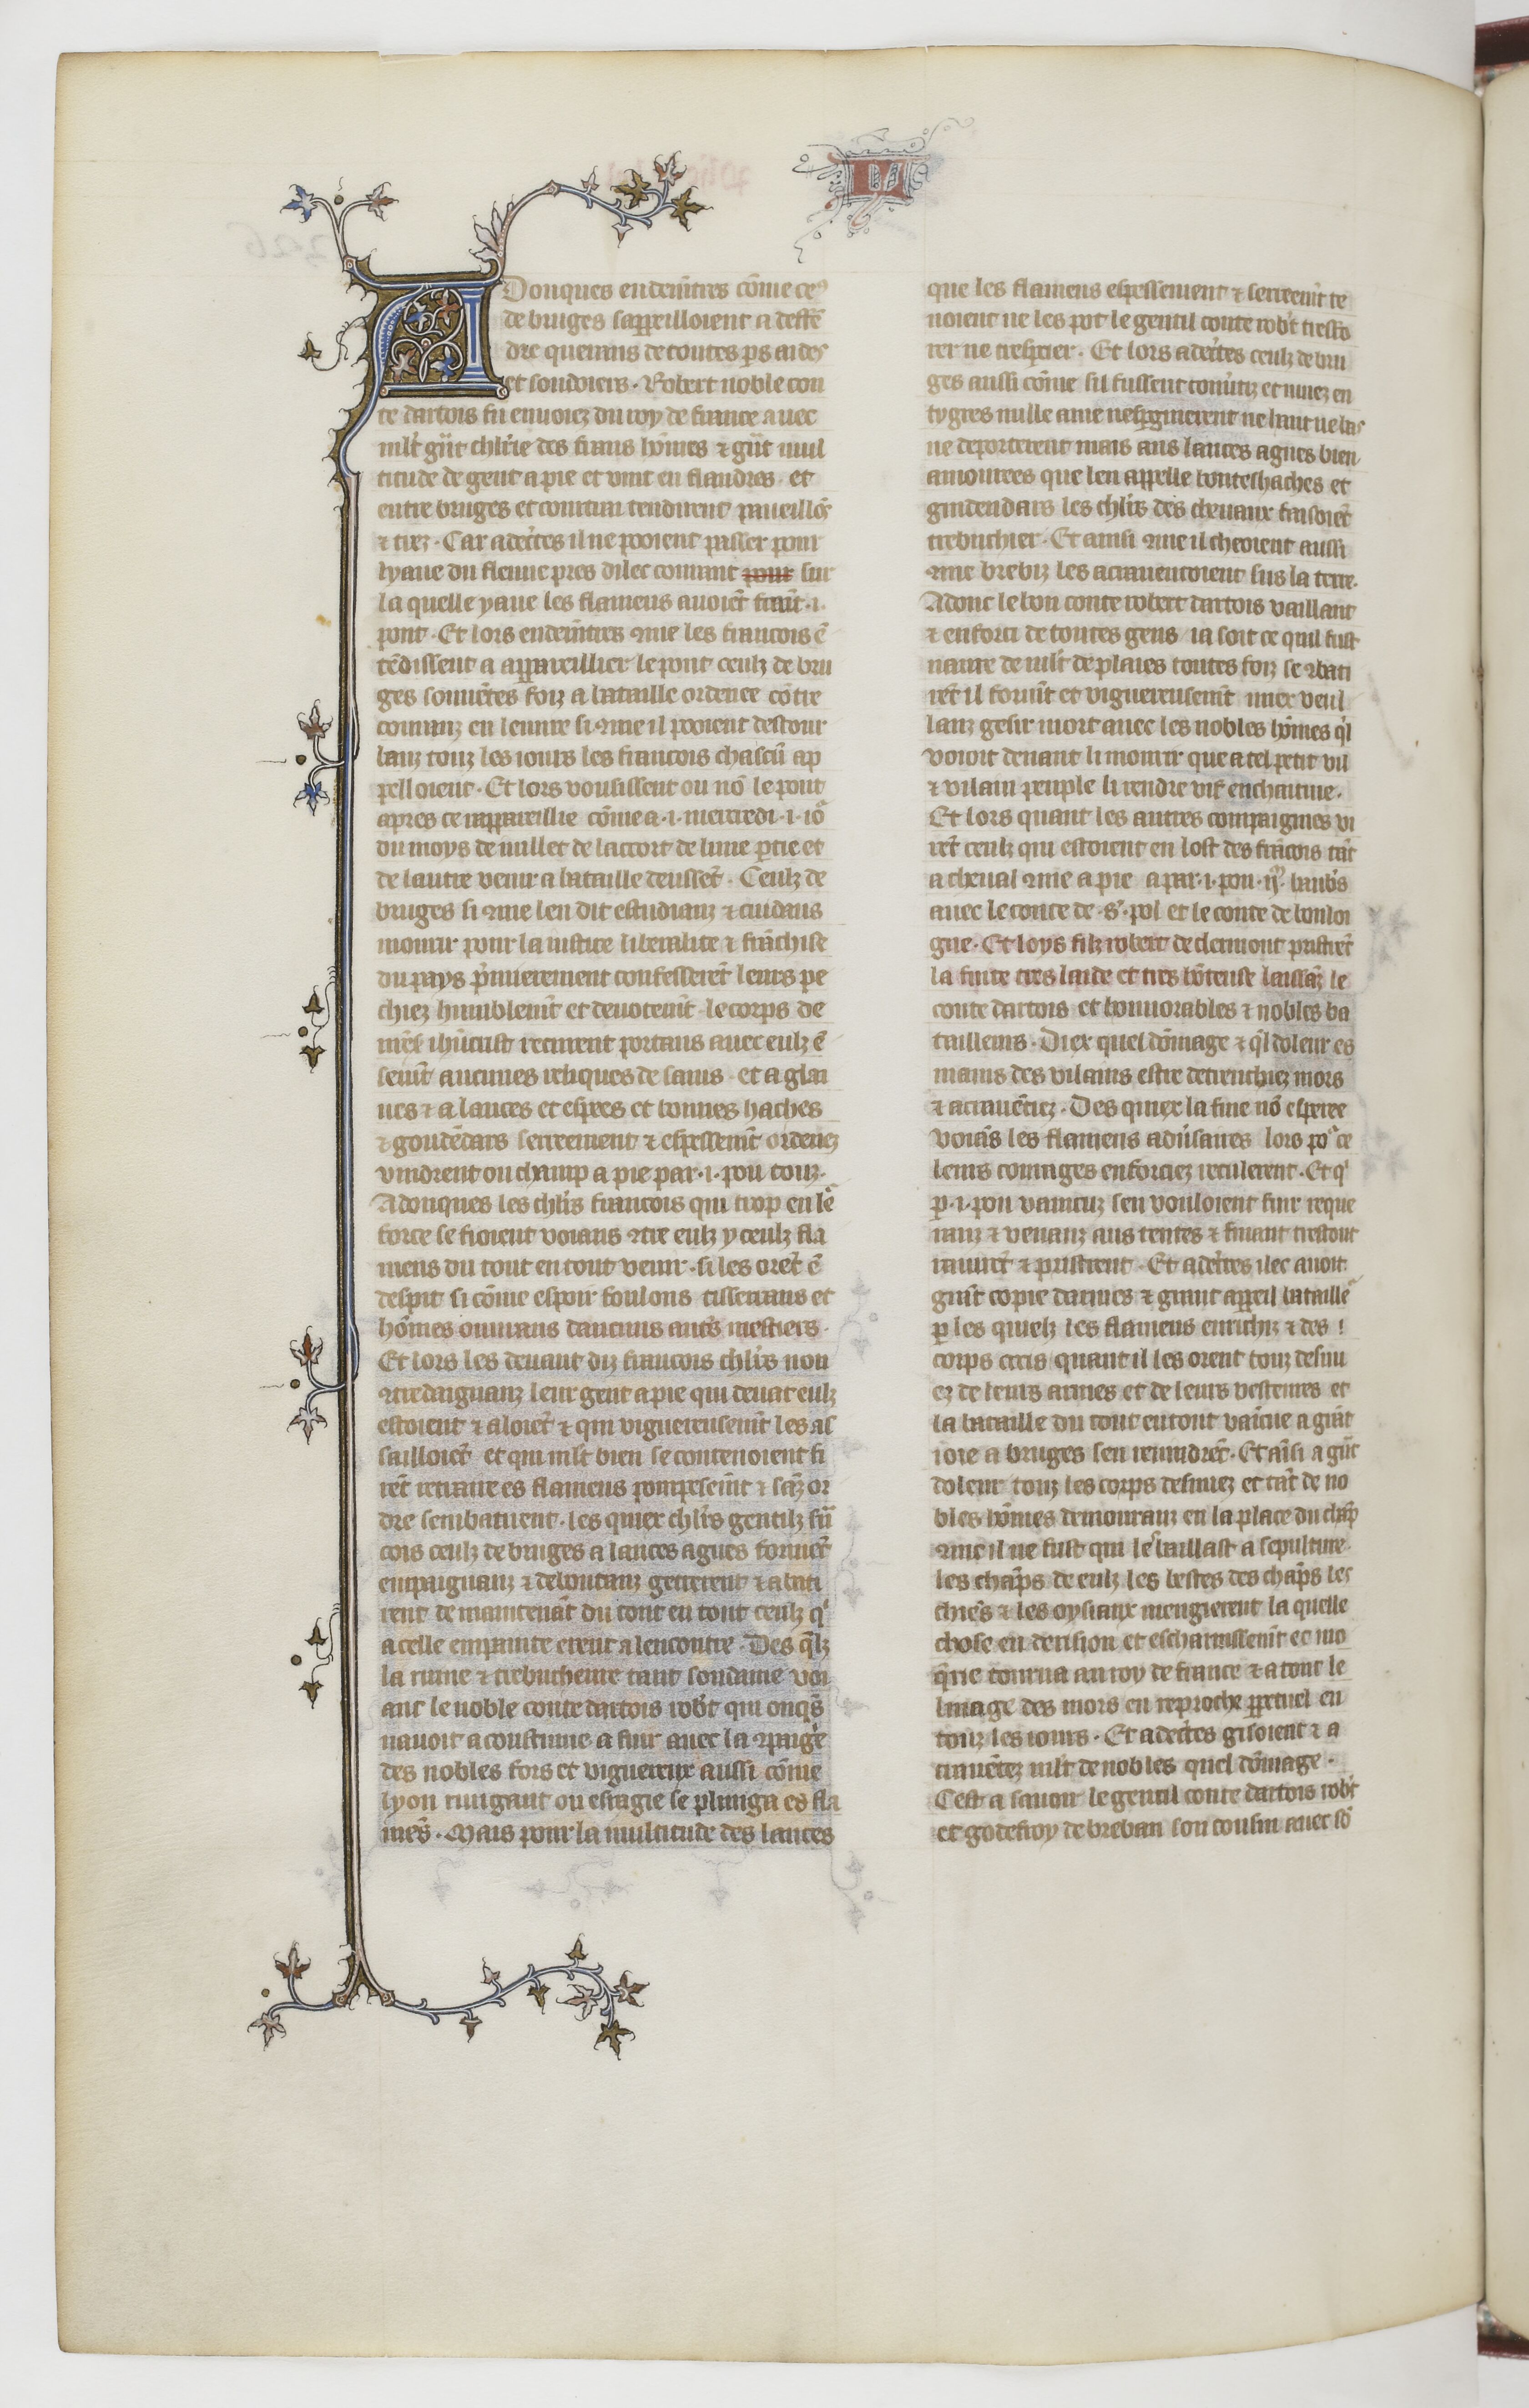 Adonques endemt̄res cōme ceˀ
de bruges sappeilloient a deffē
dre querans de toutes ꝑs aides
et soudoiers. Robert noble con
te dartois fu enuoiez du roy de france auec
ml̄t gn̄t chl̄rie des frans hōmes ⁊ gn̄t mul
titude de gent a pie et vint en flandres. et
entre bruges et courtrai tendirent paueillōs
⁊ trez. Car adec̄tes il ne pooient passer pour
lyaue du fleuue pres dilec courant pour sur
la quelle yaue les flamens auoiēt frait .i.
pont. Et lors endemt̄res ꝯme les francois ē
tēdissent a appareillier le pont ceulz de bru
ges souuētes foiz a bataille ordenee cōtre
couranz en leurre si ꝯme il pooient destour
banz touz les iours les francois chascū ap
pelloient. Et lors vousissent ou nō le pont
apres ce rappareillie cōme a .i. mercredi .i. io
du moys de iuillet de lacort de lune ꝑtie et
de lautre venir a bataille deussēt. Ceulz de
bruges si ꝯme len dit estudianz ⁊ cuidans
mourir pour la iustice liberalite ⁊ frāchise
du pays p̄mierement confesserēt leurs pe
chiez humblemt̄ et deuotemt̄ le corps de
n̄rē ihūcrist recurent portans auec eulz ē
semt̄ aucunes reliques de sains et a glai
ues ⁊ a lances et espees et bonnes haches
⁊ goudēdars serreement ⁊ espessemt̄ ordenez
vindrent ou champ a pie par .i. pou touz.
Adonques les chl̄rs francois qui trop en lē
force se fioient voians ꝯtre eulz yceulz fla
mens du tout en tout venir. si les orēt ē
despit si cōme espoir foulons tisserrans et
hōmes ouurans daucuns autˢ mestiers.
Et lors les deuant diz francois chl̄rs non
ꝯtredaignanz leur gent a pie qui deuāt eulz
estoient ⁊ aloiēt ⁊ qui viguereusemt̄ les as
sailloiēt et qui ml̄t bien se contenoient fi
rēt retraire es flamens pompesemt̄ ⁊ sāz or
dre sembatirent. les quiex chl̄rs gentilz frā
cois ceulz de bruges a lances agues formēt
empaignanz ⁊ deboutanz geterent ⁊ abati
rent de maintenāt du tout en tout ceulz q̄
a celle empainte erent a lencontre. Des q̄lz
la ruine ⁊ trebucheure tant soudaine voi
ant le noble conte dartois rob̄t qui onqs̄
nauoit acoustume a fuir auec la ꝯpaignē
des nobles fors et viguereux aussi cōme
lyon rungant ou esragie se plunga es fla
mēs. Mais pour la multitude des lances
que les flamens espessement ⁊ serreemt̄ te
noient ne les pot le gentil conte rob̄t tresto
rer ne trespcier. Et lors adec̄tes ceulz de bru
ges aussi cōme sil fussent conūtiz et muez en
tygres nulle ame nespgnierent ne haut ne bas
ne deporterent mais aus lances agues bien
amourees que len appelle bouteshaches et
gindendars les chl̄rs des cheuaux faisoiēt
trebuchier. Et ainsi ꝯme il cheoient aussi
ꝯme brebiz les acrauentoient sus la terre.
Adonc le bon conte robert dartois vaillant
⁊ enforci de toutes gens ia soit ce quil fust
naure de ml̄t de plaies toutes foiz se ꝯbati
rēt il formt̄ et viguereusemt̄ miex veul
lanz gesir mort auec les nobles hōmes q̄l
voioit deuant li mourir que a tel petit vil
⁊ vilain peuple li rendre vif enchaitiue.
Et lors quant les autres compaignies vi
rēt ceulz qui estoient en lost des frācois tāt
a cheual ꝯme a pie a par .i. pou .ii. haub̄s
auec le conte de .s. pol et le conte de bouloi
gne. Et loys filz robert de clermont pristrēt
la fuite tres laide et tres hōteuse laissāz le
conte dartois et honnorables ⁊ nobles ba
tailleurs. Diex quel dōmage ⁊ q̄l doleur es
mains des vilains estre detrenchiez mors
⁊ acrauētez. Des quiex la fuie nō esperee
voiās les flamens adūsaires lors po ce
leurs courages enforciez reculerent. Et q̄
ꝑ .i. pou vaincuz sen vouloient fuir reque
ranz ⁊ venanz aus tentes ⁊ fuiant trestout
rauirēt ⁊ pristrent. Et adec̄tes ilec auoit
grāt copie darmes ⁊ grant appeil bataillē
ꝑ les quelz les flamens enrichiz ⁊ des
corps occis quant il les orent touz desnu
ez de leurs armes et de leurs vestemēs et
la bataille du tout en tout vaīcue a grāt
ioie a bruges sen reuindrēt. Et aīsi a gn̄t
doleur touz les corps desnuez et tāt de no
bles hōmes demouranz en la place du chāp
ꝯme il ne fust qui les baillast a sepulture.
les chāps de eulz les bestes des chāps les
chiēs ⁊ les oysiaux mengierent la quelle
chose en derision et escharnissemt̄ et mo
q̄rie tourna au roy de france ⁊ a tout le
linage des mors en reproche ꝑpetuel en
touz les iours. Et adec̄tes gisoient ⁊ a
crauētez ml̄t de nobles quel dōmage.
Cest a sauoir le gentil conte dartois rob̄t
et godefroy de breban son cousin auec sō